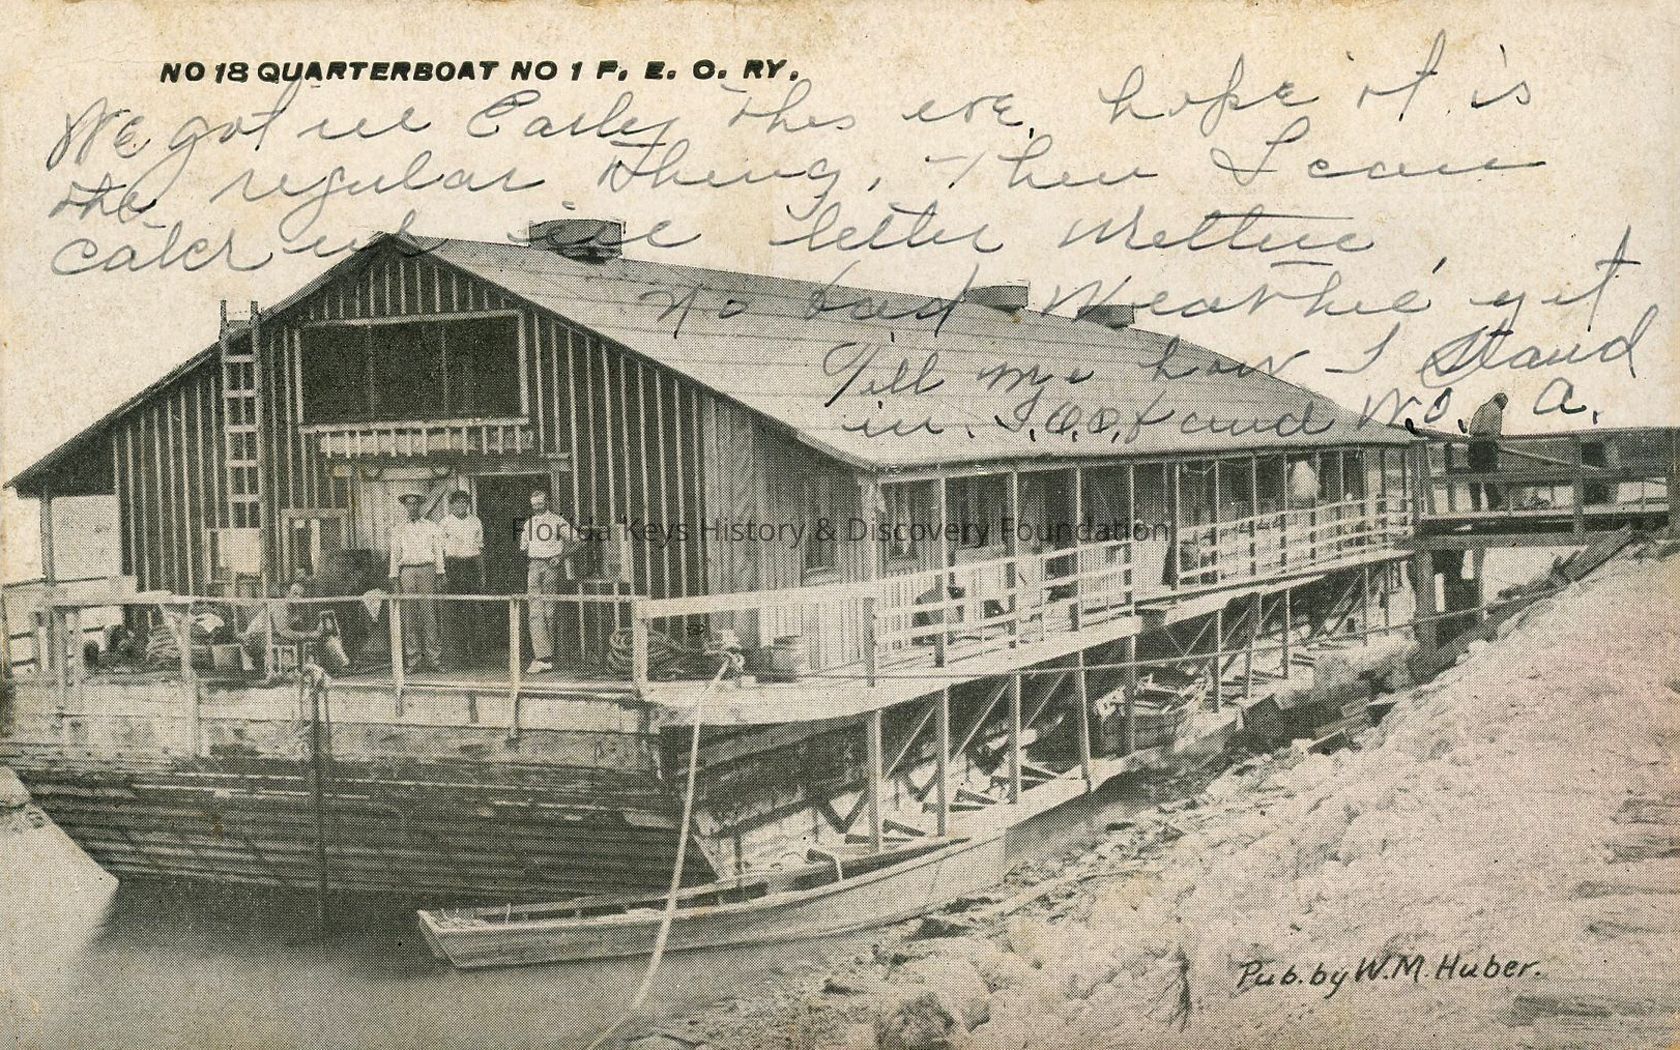 NO 18 QUARTERBOAT NO 1 F. E. C. RY.
We got in Earley this eve, hope it is
the regular thing, then I can
catch up in letter writting,
no bad Weather yet
Tell me how I stand
in I.O.O.F and W.O. A.
Florida Keys History & Discovery Foundation
Pub. by W. M. Huber.